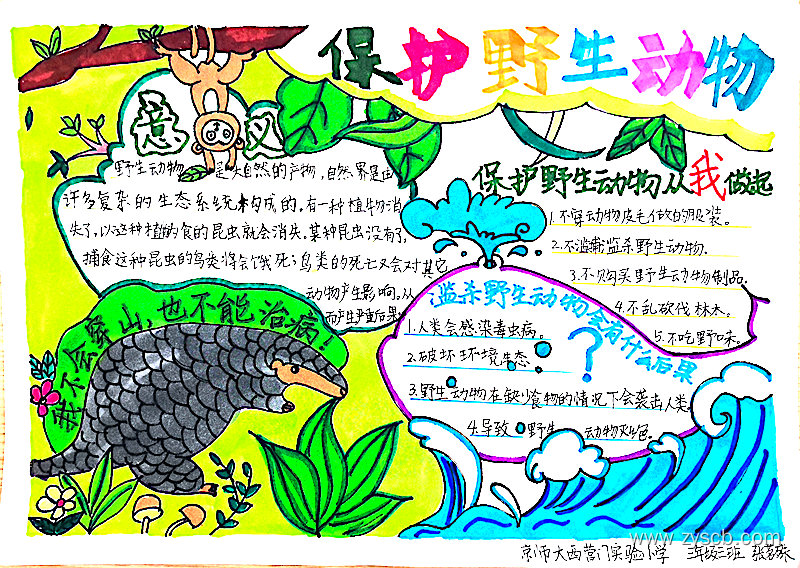 保护野生动物
意义
野生动物是大自然的产物,自然界是由
许多复杂的生态系统构成的,有一种植物消
失了,以这种植物食的昆虫就会消失。某种昆虫没有了,
捕食这种昆虫的鸟类将会饿死;鸟类的死亡又会对其它
动物产生影响。从
而产生严重后果
我不会穿山,也不能治病!
保护野生动物从我做起
1.不穿动物皮毛做的服装。
2.不滥捕滥杀野生动物.
3.不购买野生动物制品.
4.不乱砍伐林木。
5.不吃野味。
滥杀野生动物会有什么后果?
1.人类会感染毒虫病。
2.破坏环境生态
3.野生动物在缺少食物的情况下会袭击人类
4.导致野生动物灭绝。
www.zyscb.com
京师大西营门实验小学 三年级三班